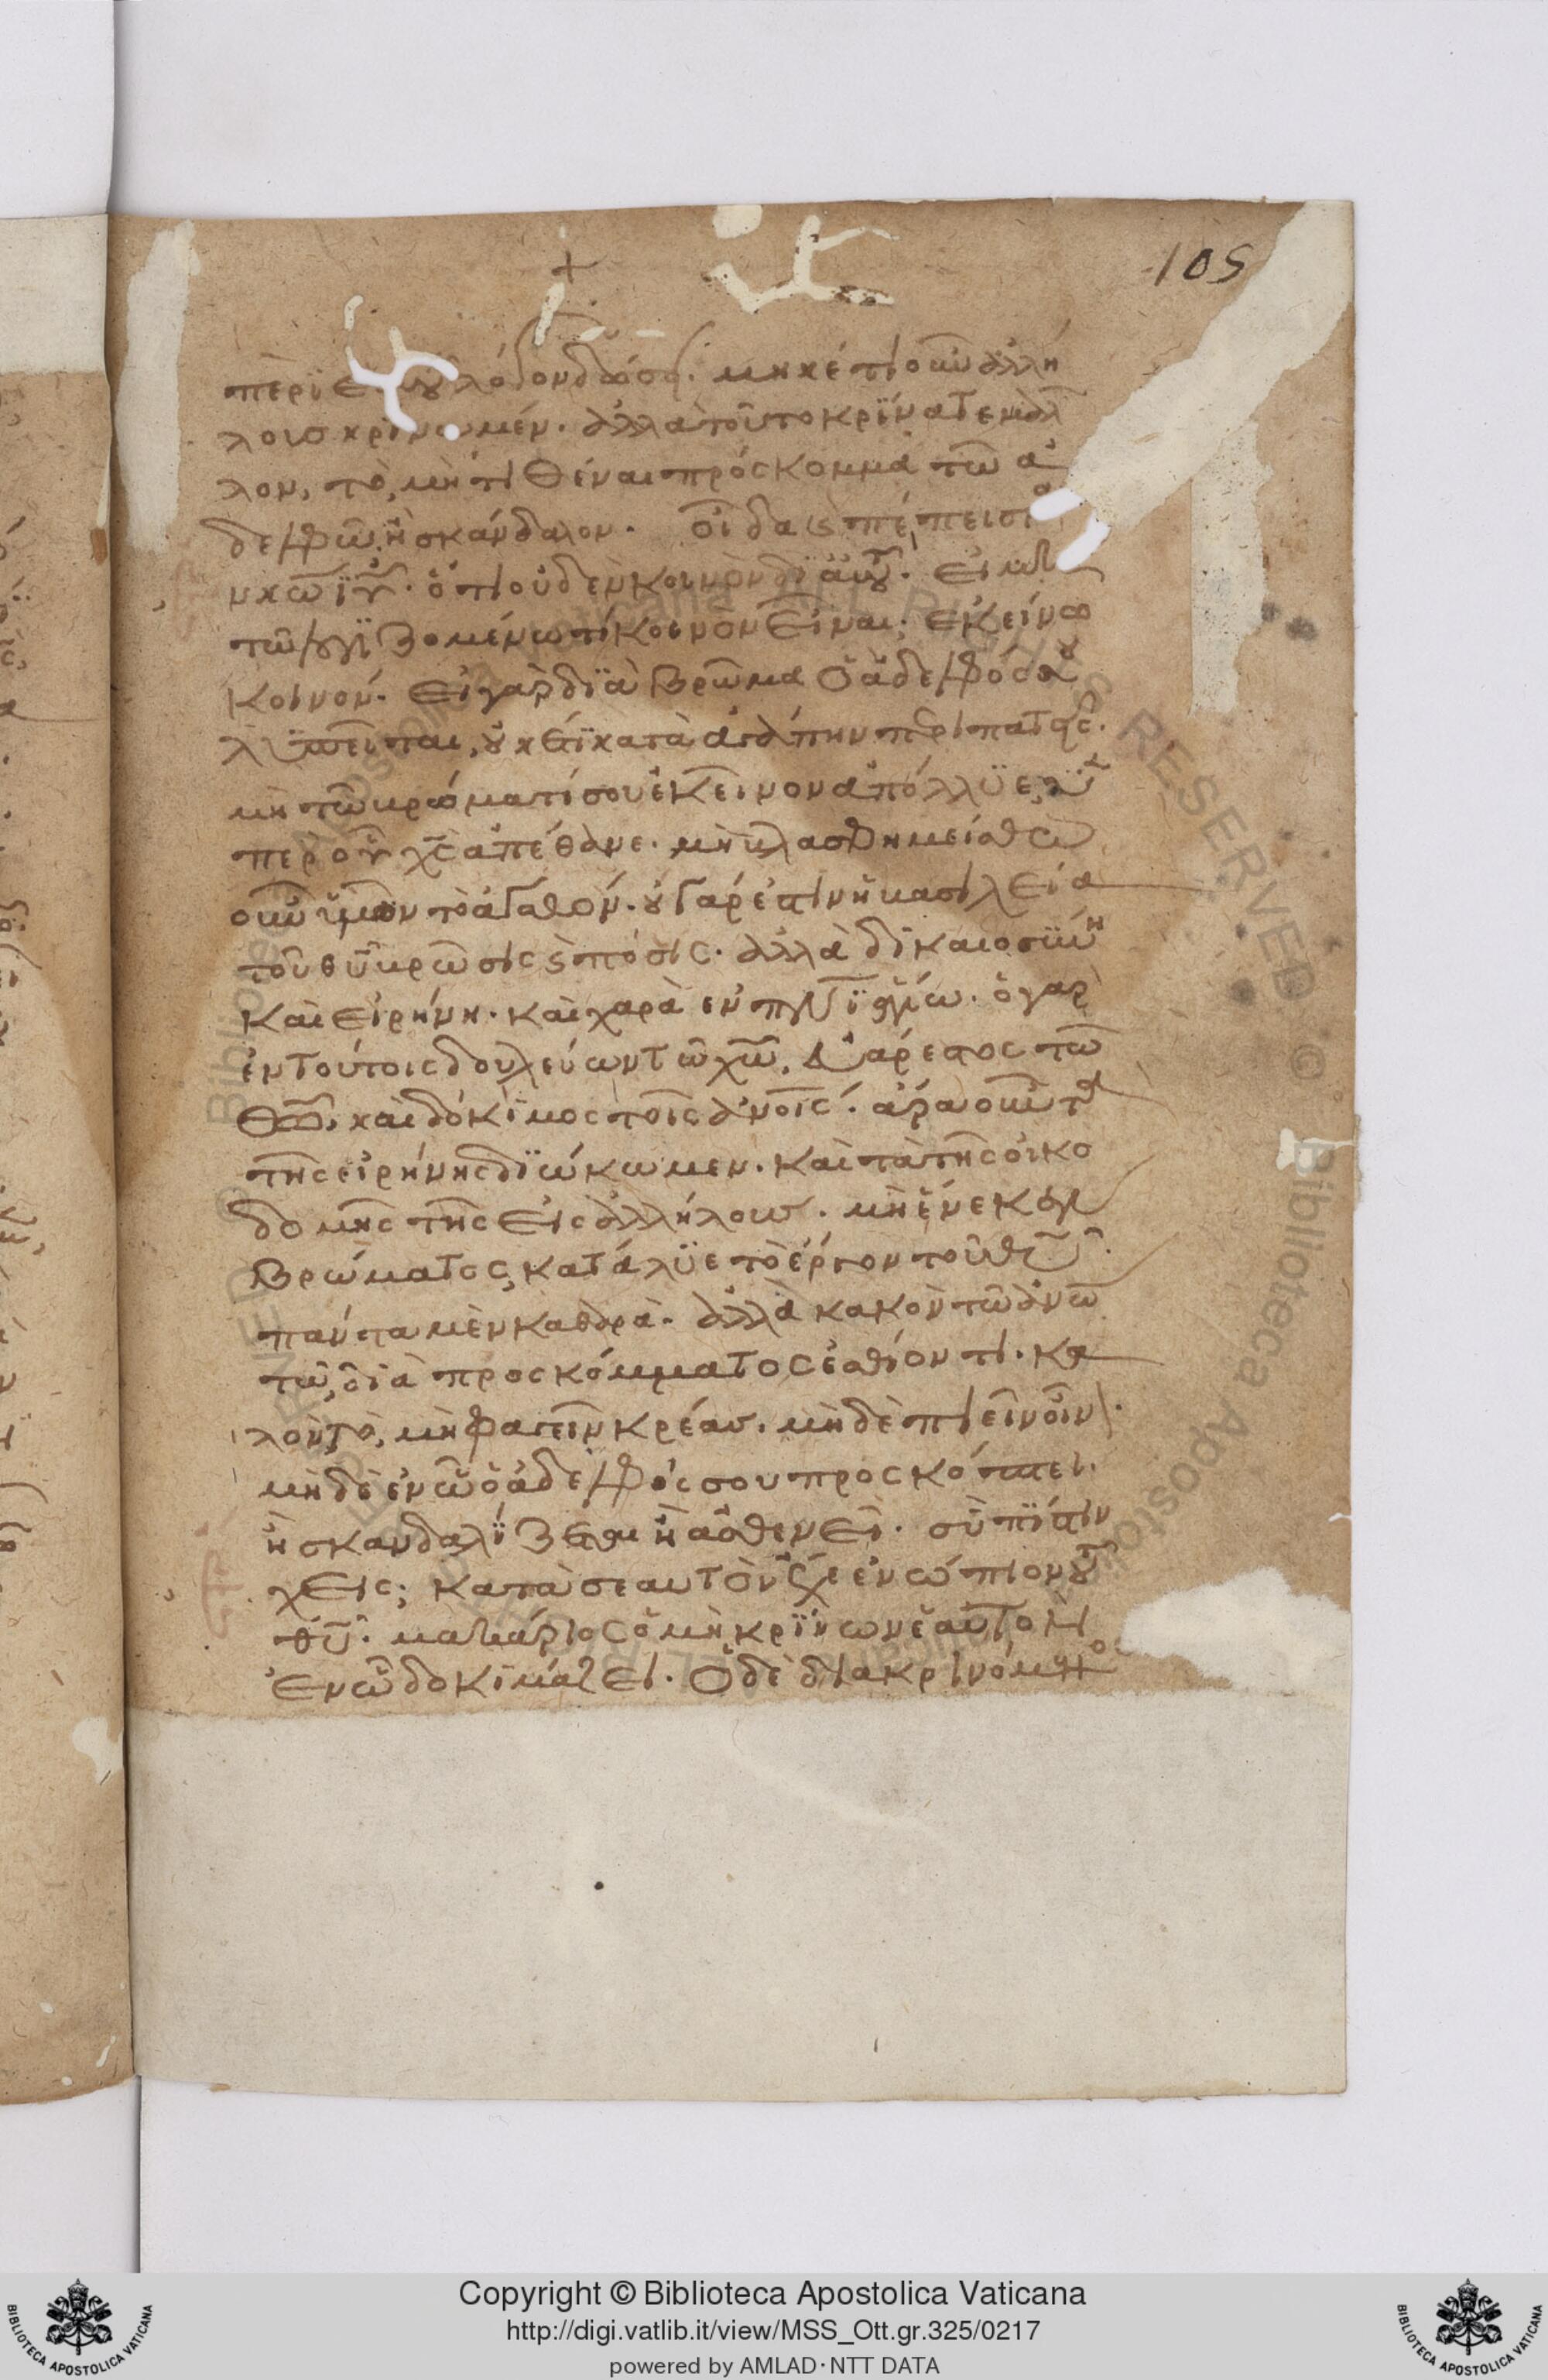 105
περὶ ε ου λόγον δώσει. μηκέτι οὖν ἀλλή
λοις κρίνωμεν. ἀλλὰ τοῦτο κρίνατε μᾶλ
λον, τὸ, μὴ τιθέναι πρόσκομμα τῶ ἀ
δελφῶ ἢ σκάνδαλον. οἶδα ϗ πέπεισμαι
ν κ̅ω̅ ϊ̅υ̅. ὅτι οὐδὲν κοινὸν δϊ αὐτοῦ. εἰ μὴ
τῶ λογϊζομένω τϊ κοινὸν εἶναι; ἐκείνω
κοινόν. εἰ γὰρ δϊὰ βρῶμα ὁ ἀδελφός σου
λϋπεῖται, οὐκέτϊ κατὰ ἀγάπην περιπατεῖς.
μὴ τῶ βρώματί σου ἐκεῖνον ἀπόλλϋε, ὑ
πὲρ οὗ χ̅ς̅ ἀπέθανε. μὴ βλασφημείσθω
οὖν ὑμῶν τὸ ἀγαθόν. οὐ γάρ ἐστιν ἡ βασιλεία
τοῦ θ̅υ̅ βρῶσις ϗ πόσις. ἀλλὰ δϊκαιοσύνη
καὶ εἰρήνη. καὶ χαρὰ ἐν π̅ν̅ϊ ἁγίω. ὁ γὰρ
ἐν τούτοις δουλεύων τῶ χ̅ω̅, εὐάρεστος τῶ
θ̅ω̅, καὶ δόκϊμος τοῖς ἀ̅ν̅οις. ἄρα οὖν τὰ
τῆς εἰρήνης δϊώκωμεν. καὶ τὰ τῆς οἰκο
δομῆς τῆς εἰς ἀλλήλους. μὴ ἕνεκεν
βρώματος, κατάλϋε τὸ ἔργον τοῦ θ̅υ̅.
πάντα μὲν καθαρὰ. ἀλλὰ κακὸν τῶ ἀ̅ν̅ω̅
τῶ, διὰ προσκόμματος ἐσθίοντι. κα
λὸν τὸ, μὴ φαγεῖν κρέας. μηδὲ πιεῖν οἶνον.
μηδὲ ἐν ὧ ὁ ἀδελφός σου προσκόπτει.
ἢ σκανδαλϊζεται ἢ ἀσθενεῖ. σὺ πϊστιν
ἔχεις; κατὰ σεαυτὸν ἔχε ἐνώπιον τοῦ
θ̅υ̅. μακάριος ὁ μὴ κρϊνων ἑαυτὸν
ἐν ὧ δοκϊμάζει. ὁ δὲ διακρινόμενος
Copyright © Biblioteca Apostolica Vaticana
http://digi.vatlib.it/view/MSS_Ott.gr.325/0217
powered by AMLAD·NTT DATA
BIBLIOTECA APOSTOLICA VATICANA
BIBLIOTECA APOSTOLICA VATICANA